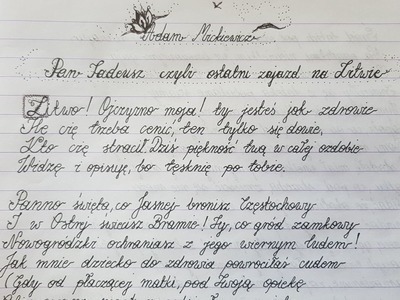 Adam Mickiewicz
Pan Tadeusz czyli ostatni zajazd na Litwie
Litwo! Ojczyzno moja! ty jesteś jak zdrowie
Ile cię trzeba cenić, ten tylko się dowie,
Kto cię stracił. Dziś piękność twą w całej ozdobie
Widzę i opisuję, bo tęsknię po tobie.
Panno święta, co Jasnej bronisz Częstochowy
I w Ostrej świecisz Bramie! Ty, co gród zamkowy
Nowogródzki ochraniasz z jego wiernym ludem!
Jak mnie dziecko do zdrowia powróciłaś cudem
(Gdy od płaczącej matki, pod Twoją opiekę